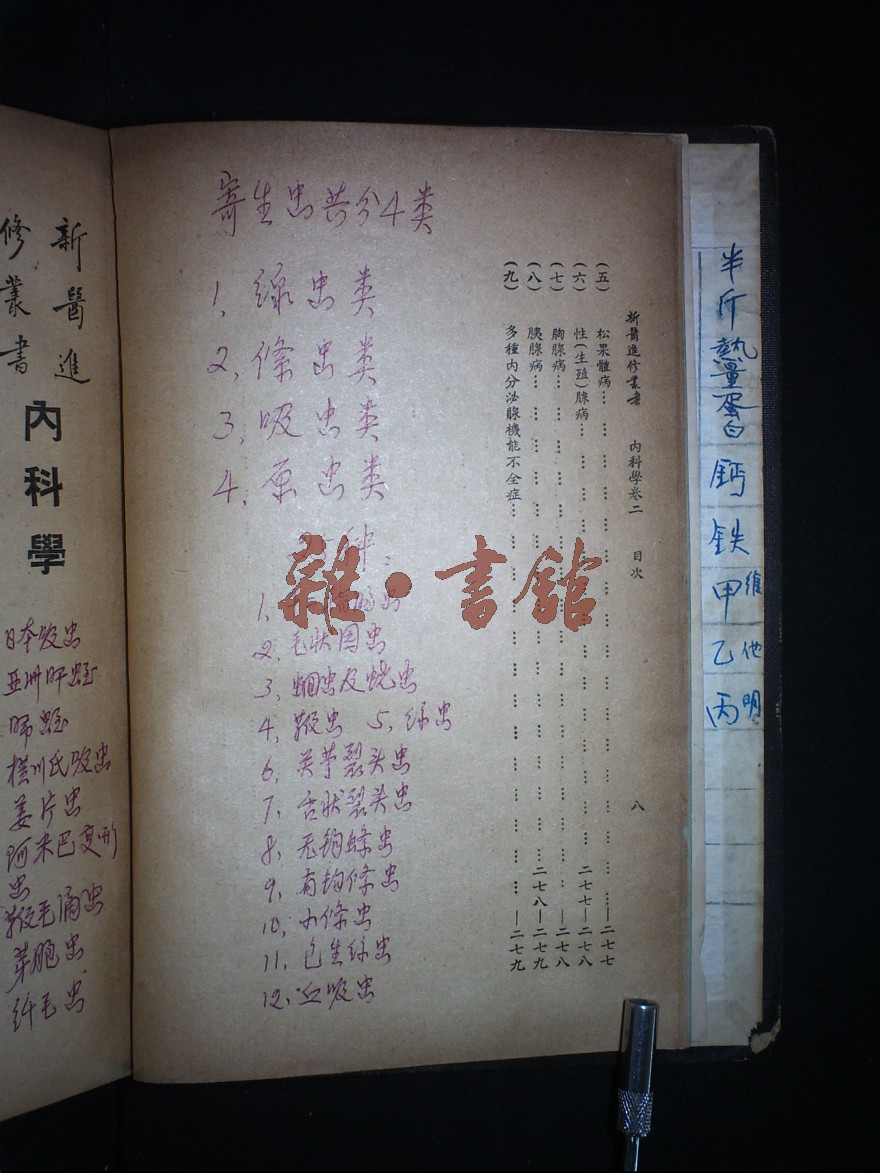 新醫進
修叢書
內科學
日本吸虫
亚洲肝蛭
肺蛭
横川氏吸虫
姜片虫
阿米巴变形
虫
鞭毛滴虫
芽胞虫
纤毛虫
寄生虫共分4类
1、線虫类
2、條虫类
3、吸虫类
4、原虫类
种
1、
2、毛状回虫
3、蛔虫及蛲虫
4、鞭虫 5、线虫
6、关节裂头虫
7、舌状裂头虫
8、无钩蜂虫
9、有钩條虫
10、小條虫
11、包生线虫
12、血吸虫
新醫進修叢書 內科學卷二 目次 八
(五) 松果體病……—二七七
(六) 性(生殖)腺病……二七七—二七八
(七) 胸腺病……—二七八
(八) 胰腺病……二七八—二七九
(九) 多種內分泌腺機能不全症……—二七九
雜·書館
半斤熱量蛋白鈣鉄甲乙丙
維他明